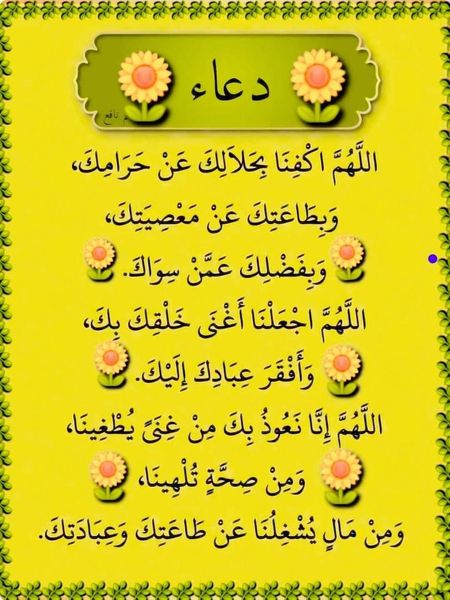 دعاء
اللَّهُمَّ اكْفِنَا بِحَلَالِكَ عَنْ حَرَامِكَ،
وَبِطَاعَتِكَ عَنْ مَعْصِيَتِكَ،
وَبِفَضْلِكَ عَمَّنْ سِوَاكَ.
اللَّهُمَّ اجْعَلْنَا أَغْنَى خَلْقِكَ بِكَ،
وَأَفْقَرَ عِبَادِكَ إِلَيْكَ.
اللَّهُمَّ إِنَّا نَعُوذُ بِكَ مِنْ غِنَىً يُطْغِينَا،
وَمِنْ صِحَّةٍ تُلْهِينَا،
وَمِنْ مَالٍ يُشْغِلُنَا عَنْ طَاعَتِكَ وَعِبَادَتِكَ.